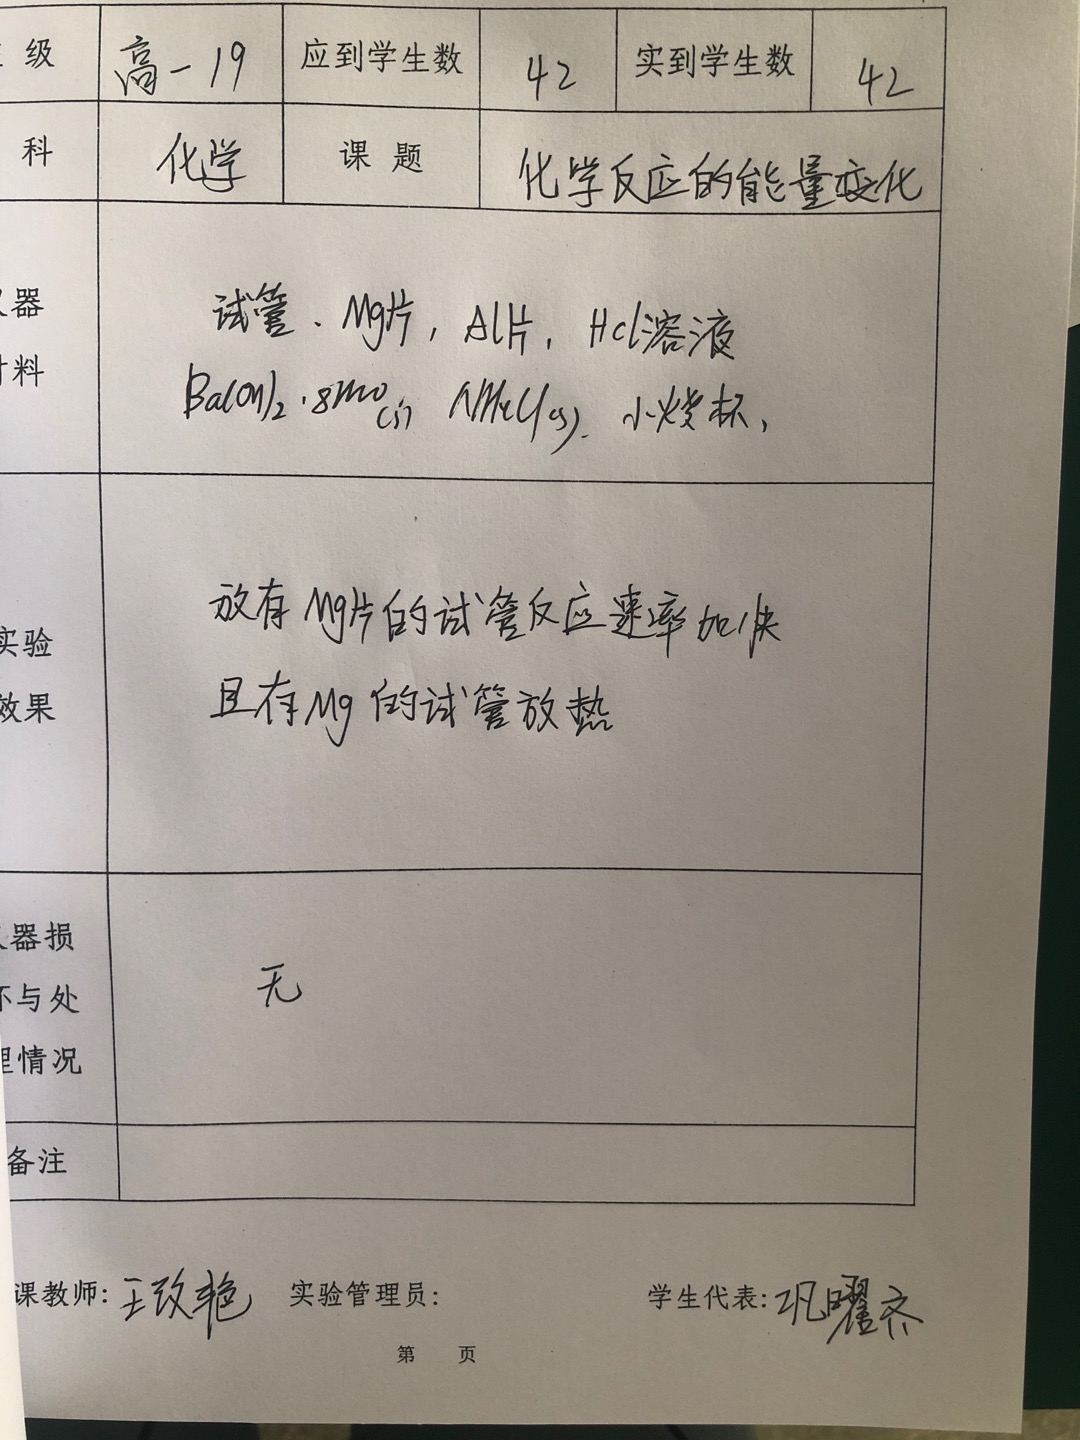 级 高一19 应到学生数 42 实到学生数 42
科 化学 课题 化学反应的能量变化
器
材料
试管、Mg片,Al片,Hcl溶液
Ba(OH)2·8H2O(s) NH4Cl(s). 小烧杯,
实验
效果
放有Mg片的试管反应速率加快
且有Mg的试管放热
器损
坏与处
理情况
无
备注
课教师:王改艳 实验管理员: 学生代表:巩曜齐
第 页